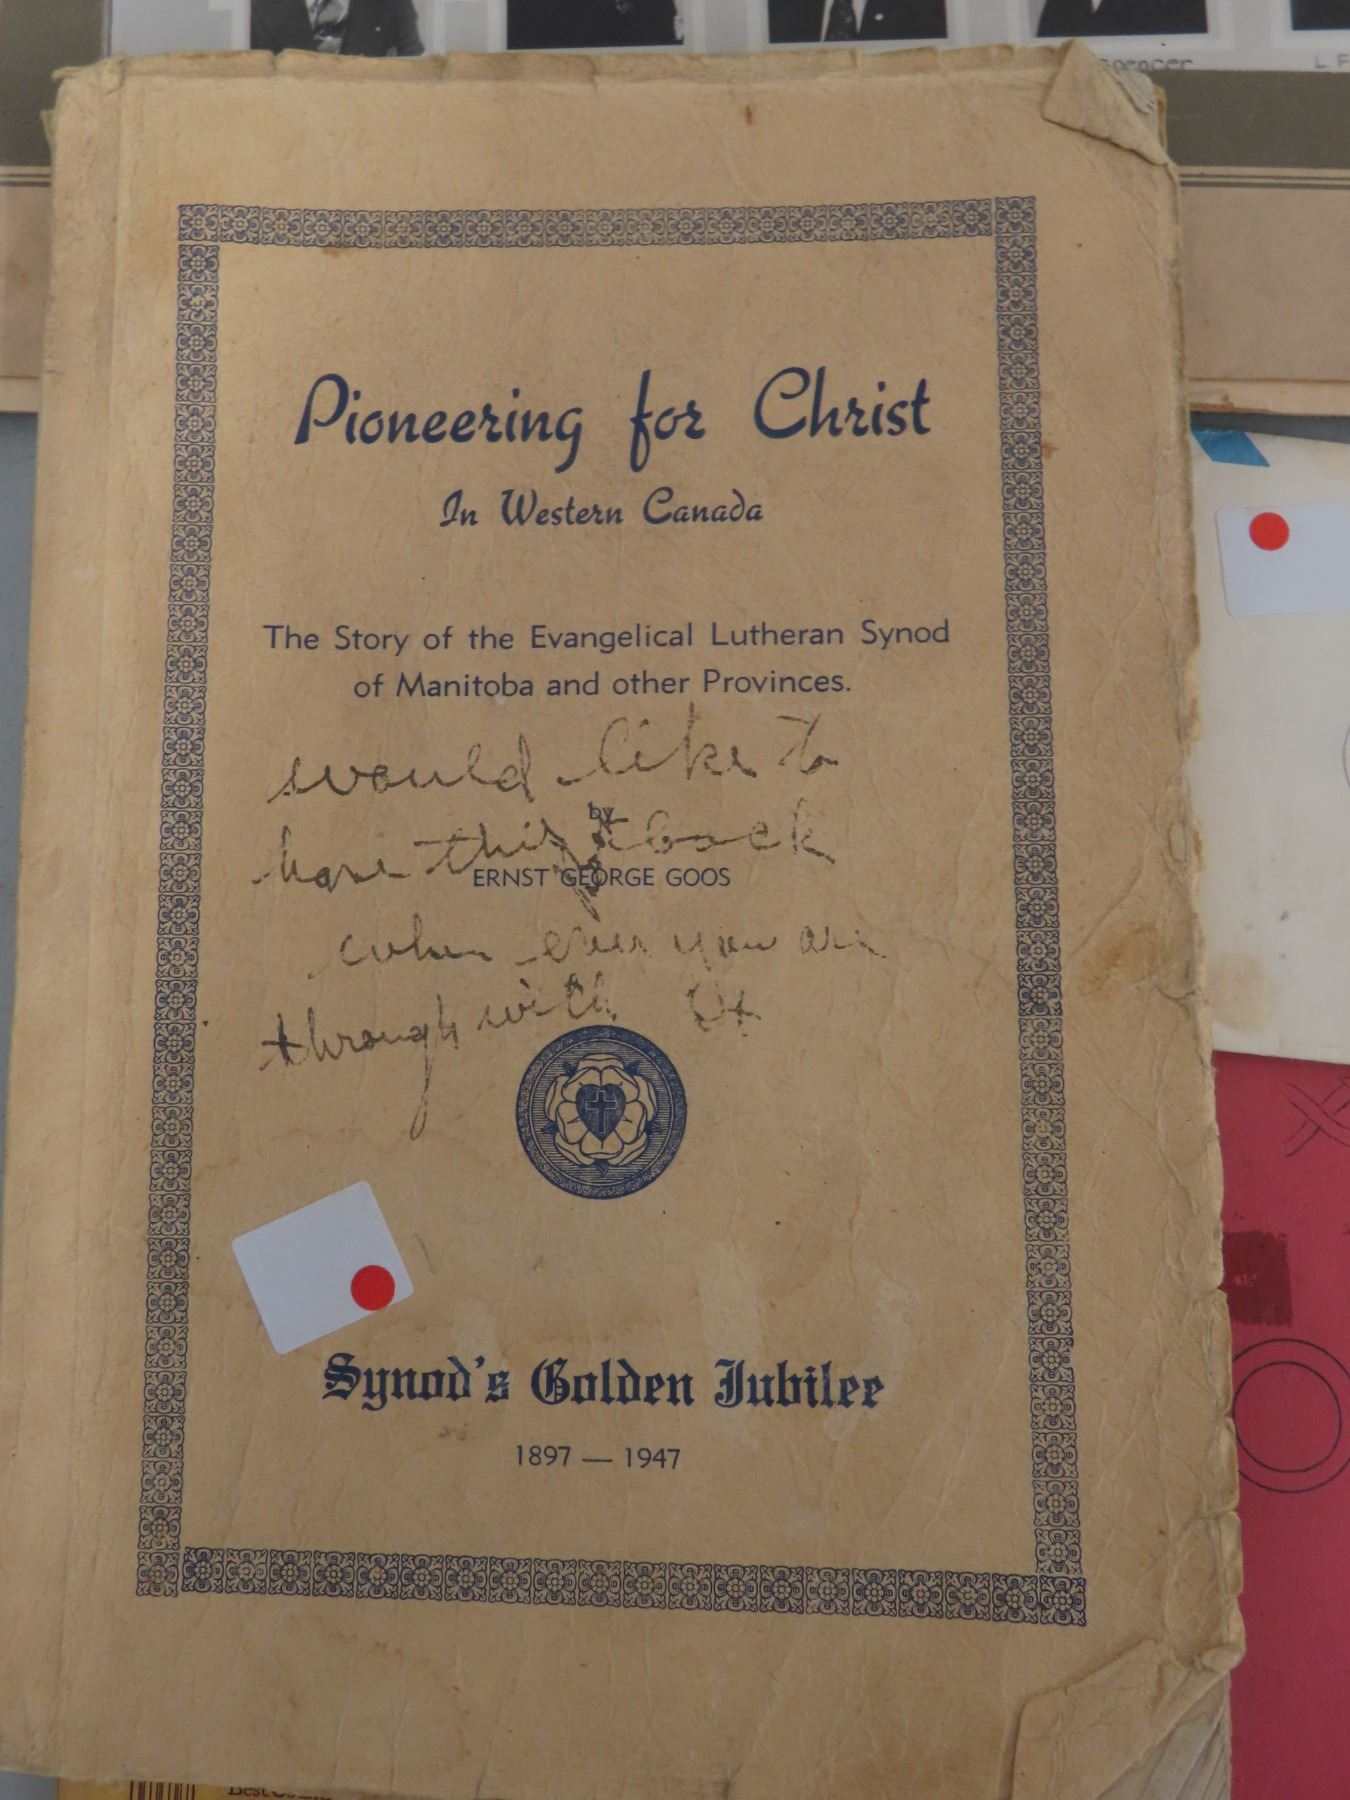 spencer
L F
Pioneering for Christ
In Western Canada
The Story of the Evangelical Lutheran Synod
of Manitoba and other Provinces.
would like to
by
have this back
ERNST GEORGE GOOS
when ever you are
through with it
Synod's Golden Jubilee
1897 — 1947